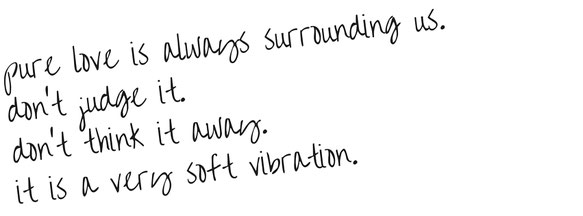 pure love is always surrounding us.
don't judge it.
don't think it away.
it is a very soft vibration.